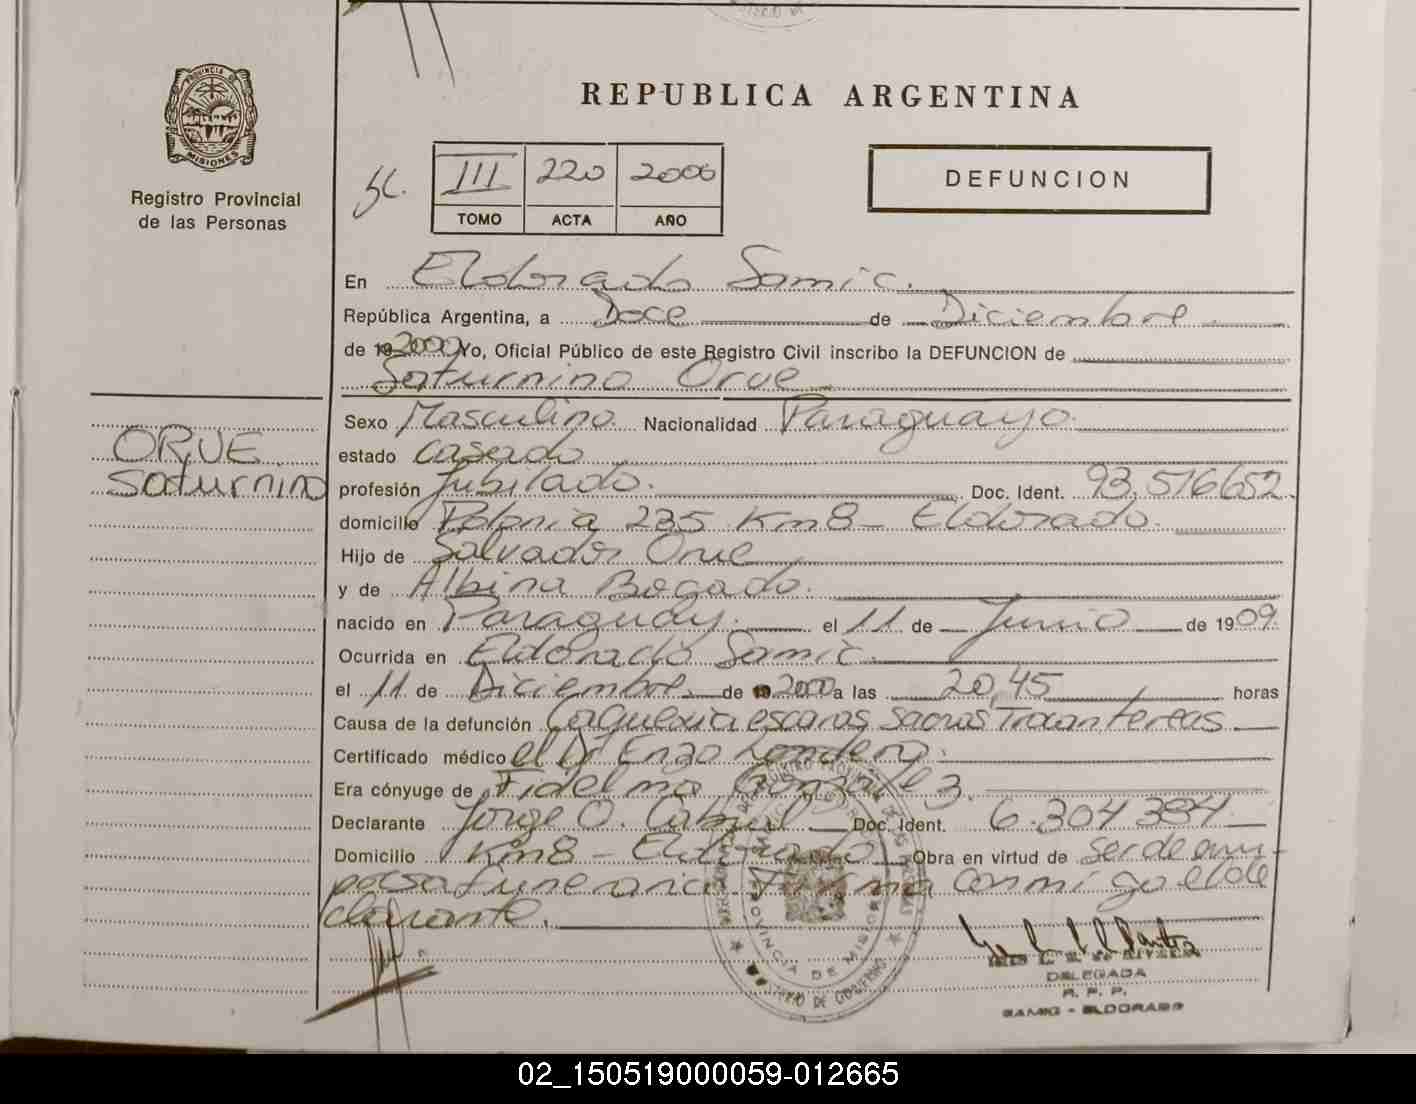 REPUBLICA ARGENTINA
PROVINCIA DE
MISIONES
Registro Provincial
de las Personas
III 220 2000
TOMO ACTA AÑO
DEFUNCION
En Eldorado Samic.
República Argentina, a Doce de Diciembre
de 2000 Yo, Oficial Público de este Registro Civil inscribo la DEFUNCION de
Saturnino Orue
ORUE
Saturnino
Sexo Masculino Nacionalidad Paraguayo.
estado casado
profesión Jubilado. Doc. Ident. 93.576652
domicilio Polonia 235 Km8 - Eldorado.
Hijo de Salvador Orue
y de Albina Bogado.
nacido en Paraguay. el 11 de Junio de 1909.
Ocurrida en Eldorado Samic.
el 11 de Diciembre de 2000 a las 20,45 horas
Causa de la defunción Caquexia escaras sacras Trocantereas
Certificado médico el Dr Enzo
Era cónyuge de Fidelma Gonzalez.
Declarante Jorge O. Cabral Doc. Ident. 6.304384
Domicilio Km8 - Eldorado Obra en virtud de ser de em-
presa funeraria. Firma conmigo el de
clarante.
PROVINCIA DE MISIONES
DELEGADA
R. P. P.
SAMIC - ELDORADO
02_150519000059-012665